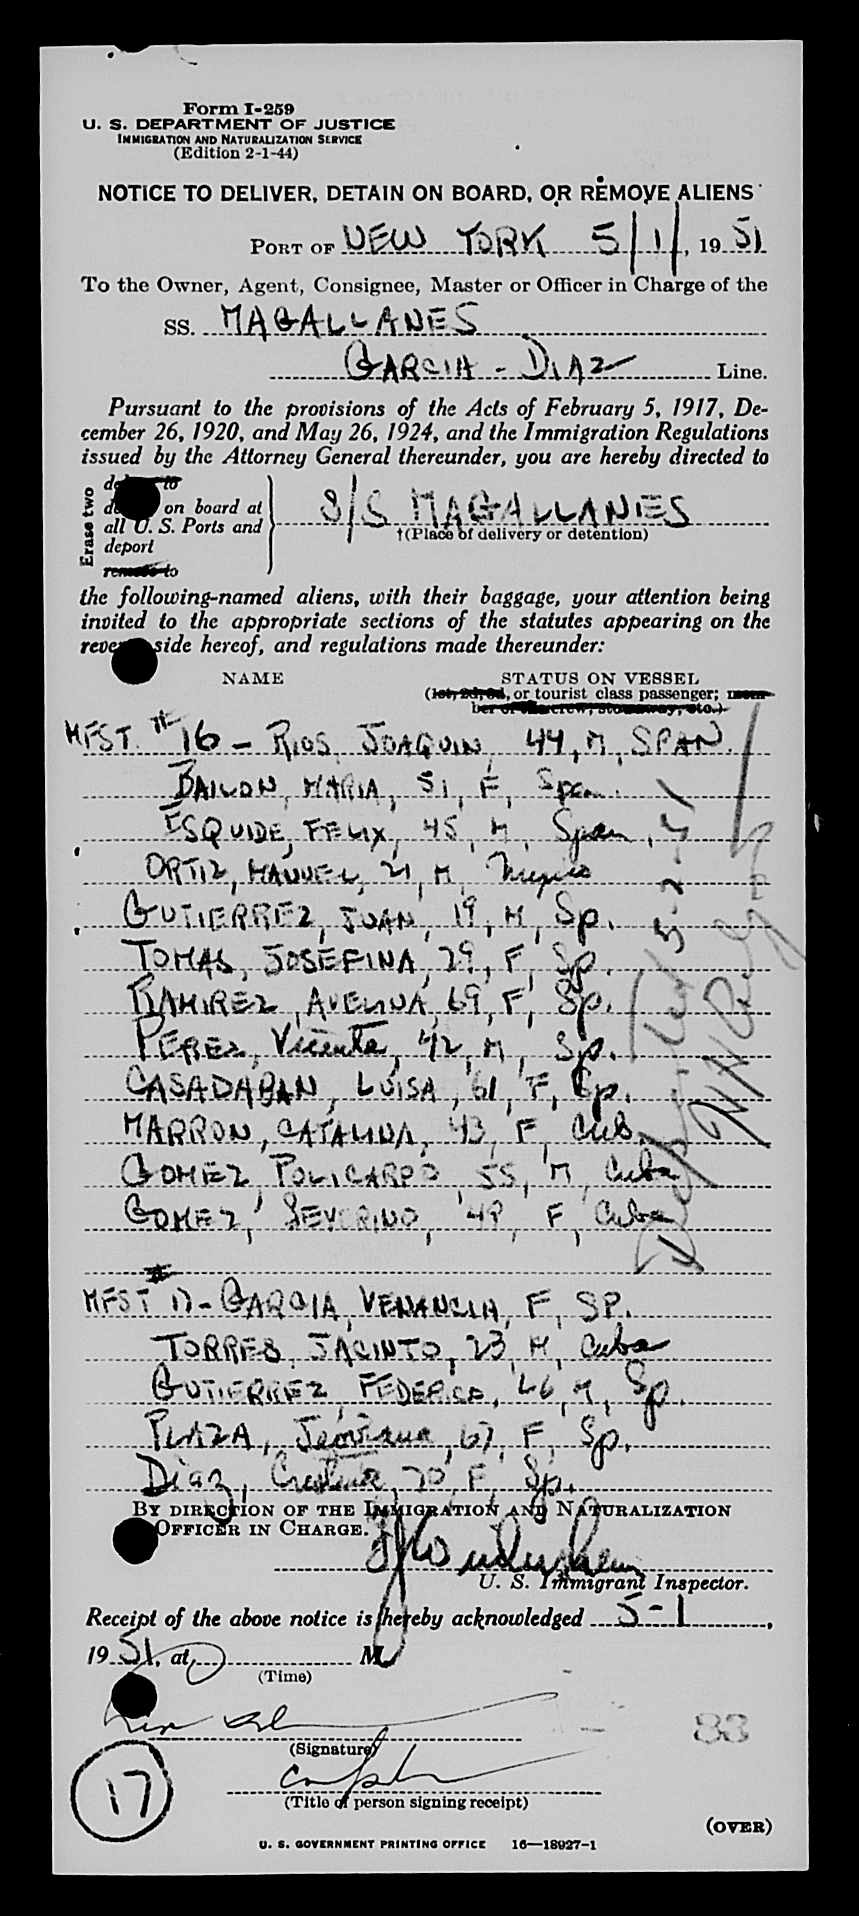 Form I-259
U. S. DEPARTMENT OF JUSTICE
IMMIGRATION AND NATURALIZATION SERVICE
(Edition 2-1-44)
NOTICE TO DELIVER, DETAIN ON BOARD, OR REMOVE ALIENS
PORT OF NEW YORK 5/1/, 1951
To the Owner, Agent, Consignee, Master or Officer in Charge of the
SS. MAGALLANES
GARCIA - DIAZ Line.
Pursuant to the provisions of the Acts of February 5, 1917, De-
cember 26, 1920, and May 26, 1924, and the Immigration Regulations
issued by the Attorney General thereunder, you are hereby directed to
Erase two
on board at
all U. S. Ports and
deport
remove to
S/S MAGALLANES
†(Place of delivery or detention)
the following-named aliens, with their baggage, your attention being
invited to the appropriate sections of the statutes appearing on the
reverse side hereof, and regulations made thereunder:
NAME STATUS ON VESSEL
(1st, 2d, 3d, or tourist class passenger; mem-
ber of the crew, stowaway, etc.)
MFST. # 16 - RIOS, JOAQUIN, 44, M, SPAN.
BAILON, MARIA, 51, F, Span.
ESQUIDE, FELIX, 45, M, Span,
ORTIZ, MANUEL, 21, M, Mexico
GUTIERREZ, JUAN, 19, M, Sp.
TOMAS, JOSEFINA, 29, F, Sp.
RAMIREZ, AVELINA, 69, F, Sp.
PEREZ, Vicente, 42, M, Sp.
CASADABAN, LUISA, 61, F, Sp.
MARRON, CATALINA, 43, F, Cub.
GOMEZ, POLICARPO 55, M, Cuba
GOMEZ, SEVERINO, 49, F, Cuba
5-2-51
MFST # 17 - GARCIA, VENANCIA, F, SP.
TORRES, JACINTO, 23, M, Cuba
GUTIERREZ, FEDERICO, 46, M, Sp.
PLAZA, 67, F, Sp.
Diaz, 70, F, Sp.
BY DIRECTION OF THE IMMIGRATION AND NATURALIZATION
OFFICER IN CHARGE.
U. S. Immigrant Inspector.
Receipt of the above notice is hereby acknowledged 5-1,
1951, at M
(Time)
(Signature)
(Title of person signing receipt)
17
83
(OVER)
U. S. GOVERNMENT PRINTING OFFICE 16—18927-1